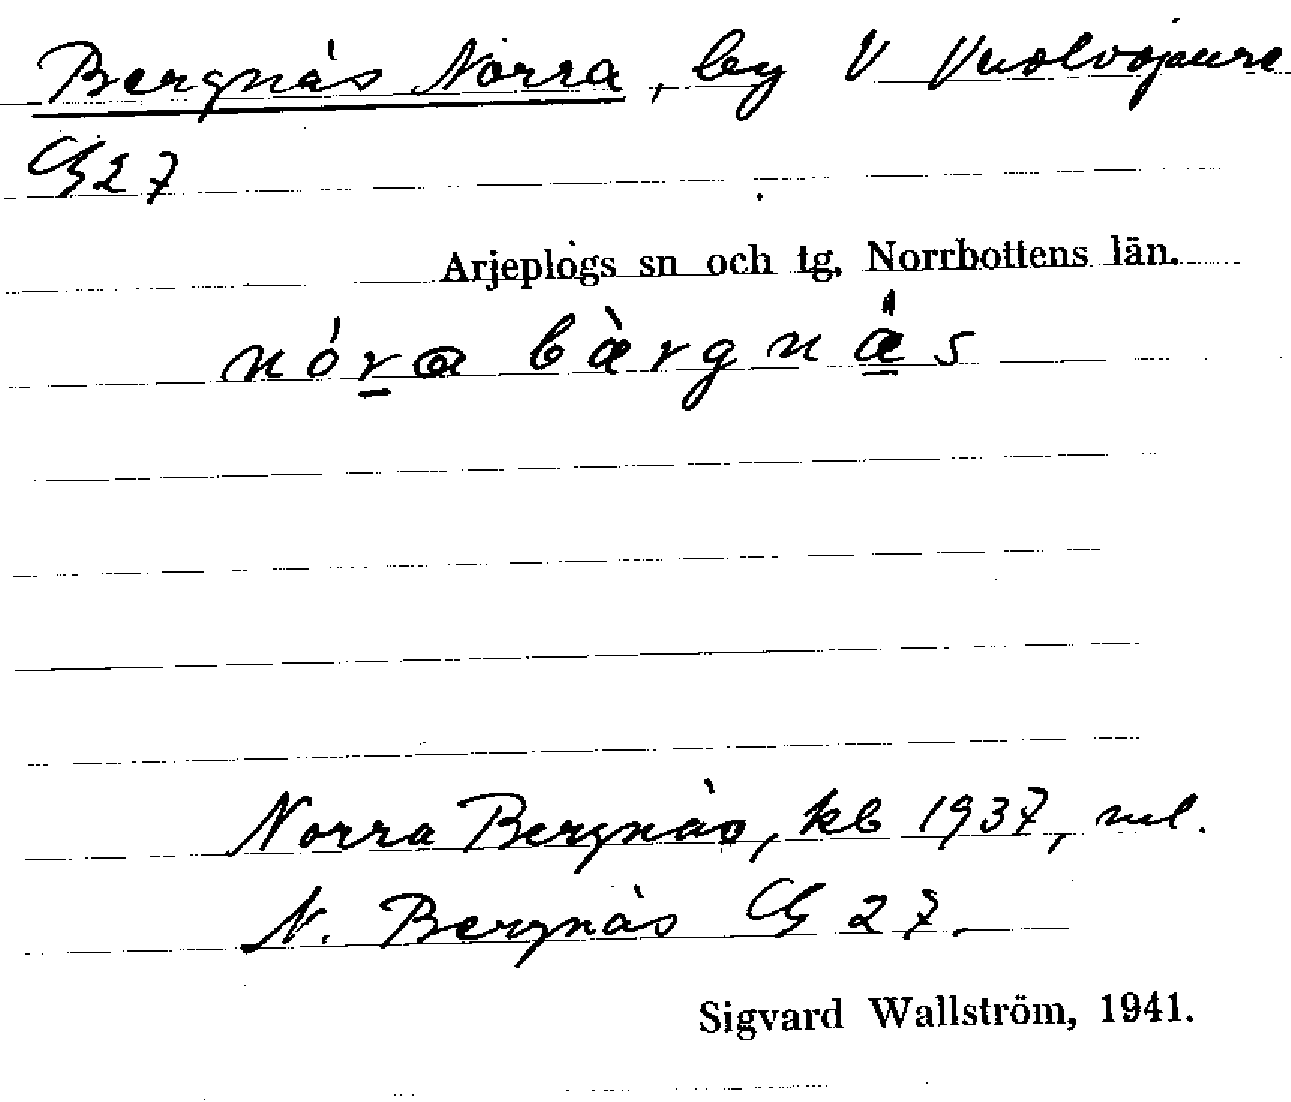 Bergnäs Norra, by V Vuolvojaure
G 27
Arjeplogs sn och tg, Norrbottens län.
nóra bàrgnä́s
Norra Bergnäs, kb 1937, ml.
N. Bergnäs G 27.
Sigvard Wallström, 1941.